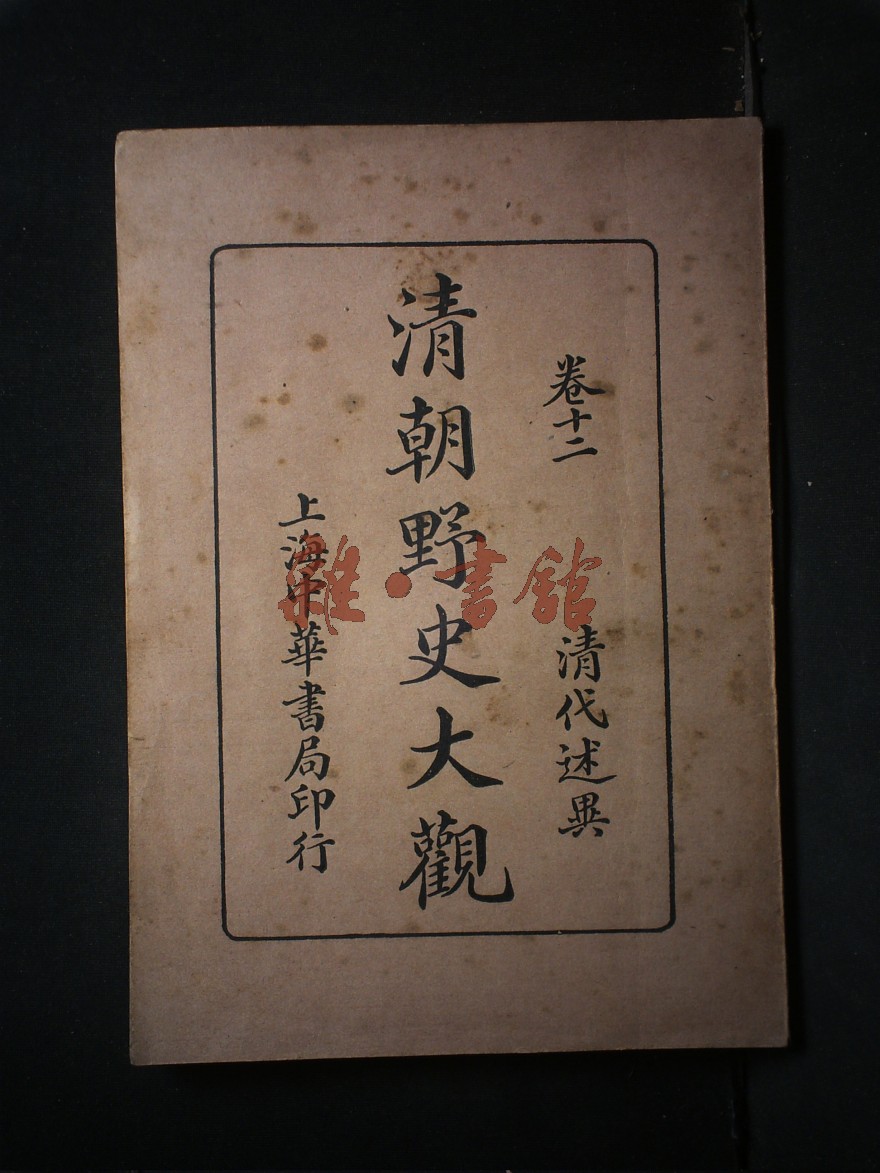 卷十二 清代述異
清朝野史大觀
上海中華書局印行
雜·書館